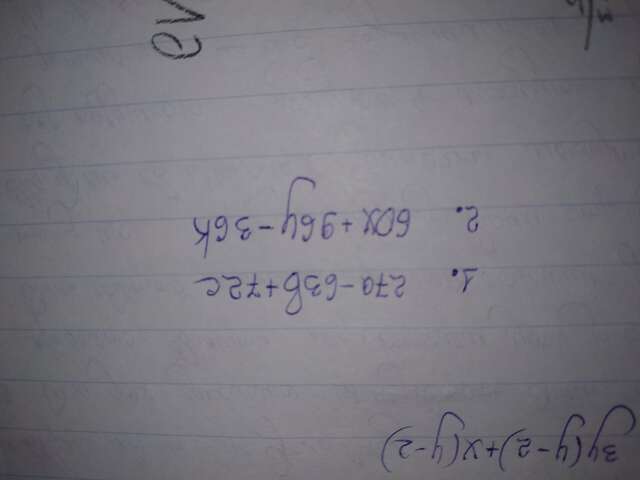 3y(y-2)+x(y-2)
1. 27a-63b+72c
2. 60x+96y-36k